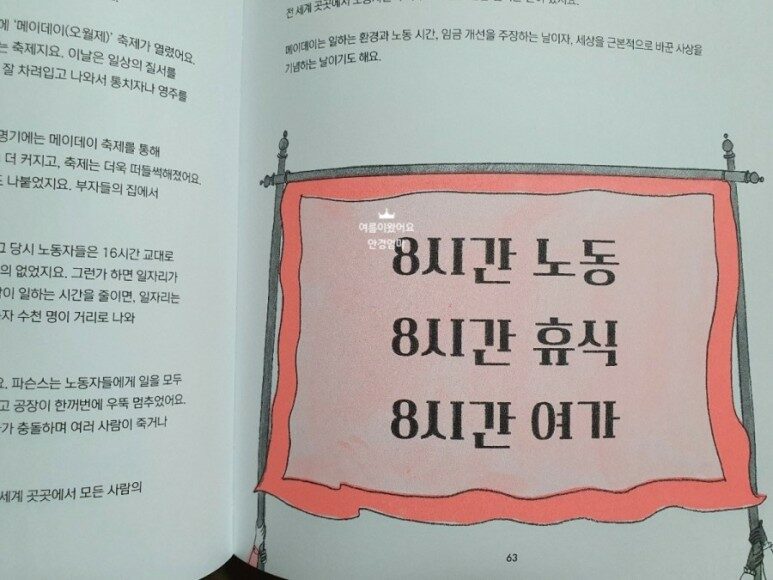 에 ‘메이데이(오월제)’ 축제가 열렸어요.
는 축제지요. 이날은 일상의 질서를
잘 차려입고 나와서 통치자나 영주를
명기에는 메이데이 축제를 통해
더 커지고, 축제는 더욱 떠들썩해졌어요.
나붙었지요. 부자들의 집에서
그 당시 노동자들은 16시간 교대로
의 없었지요. 그런가 하면 일자리가
이 일하는 시간을 줄이면, 일자리는
자 수천 명이 거리로 나와
요. 파슨스는 노동자들에게 일을 모두
고 공장이 한꺼번에 우뚝 멈추었어요.
가 충돌하며 여러 사람이 죽거나
세계 곳곳에서 모든 사람의
전 세계 곳곳에서
메이데이는 일하는 환경과 노동 시간, 임금 개선을 주장하는 날이자, 세상을 근본적으로 바꾼 사상을
기념하는 날이기도 해요.
여름이왔어요
안경엄마
8시간 노동
8시간 휴식
8시간 여가
63